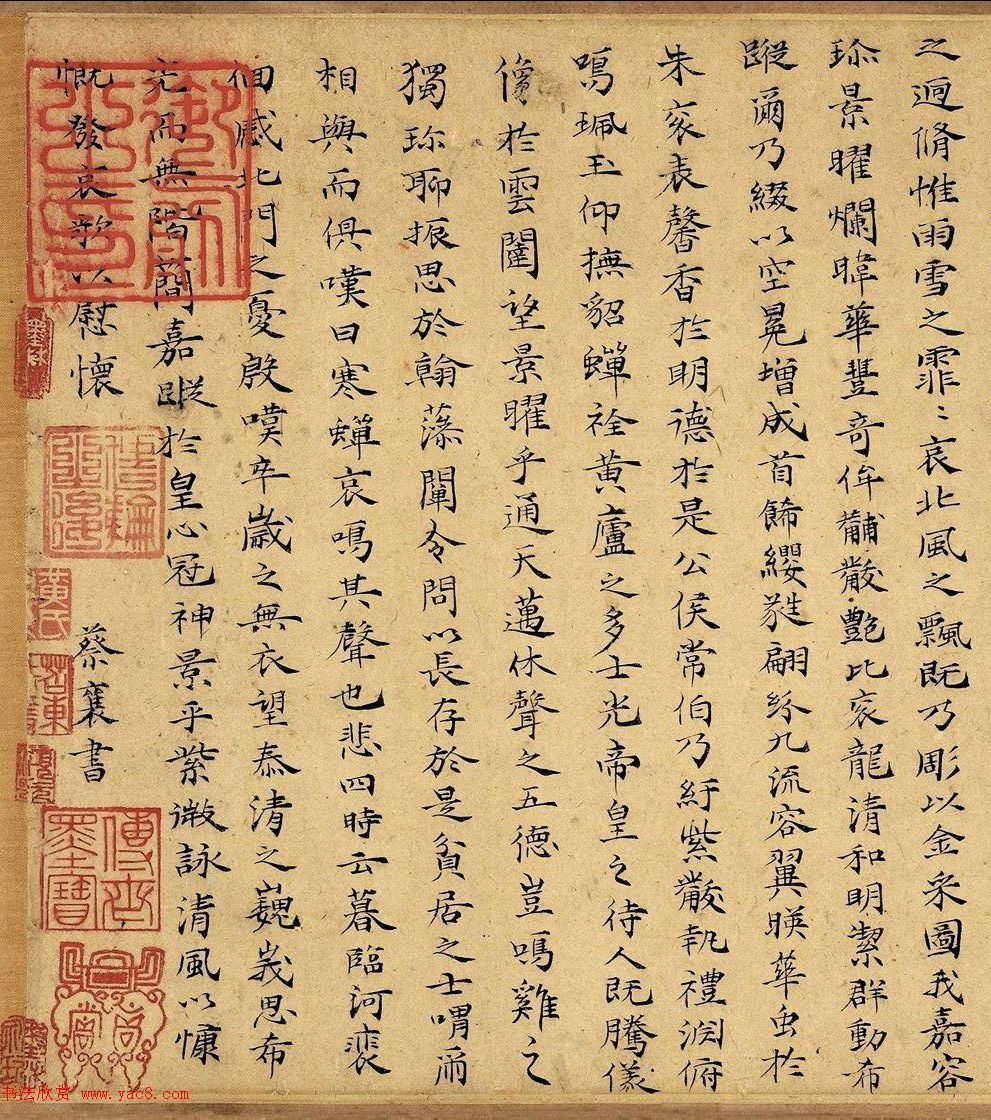 之迴脩惟雨雪之霏〻哀北風之飄既乃彫以金采圖我嘉容
珎景曜爛暐華豐奇侔黼黻艷比衮龍清和明潔群動希
蹤爾乃綴以空冕增成首飾纓蕤翩紛九流容翼暎華虫於
朱衮表馨香於明德於是公侯常伯乃紆紫黻執禮淵俯
鳴珮玉仰撫貂蟬裣黃廬之多士光帝皇之待人既騰儀
像於雲闥望景曜乎通天邁休聲之五德豈鳴雞之
獨珎聊振思於翰藻闡令問以長存於是貧居之士喟爾
相與而俱嘆曰寒蟬哀鳴其聲也悲四時云暮臨河裴
佪感北門之憂殷嘆卒歲之無衣望泰清之巍峩思希
光而無階簡嘉蹤於皇心冠神景乎紫微詠清風以慷
慨發哀歌以慰懷
蔡襄書
御府寶
墨寶
书法欣赏 www.yac8.com